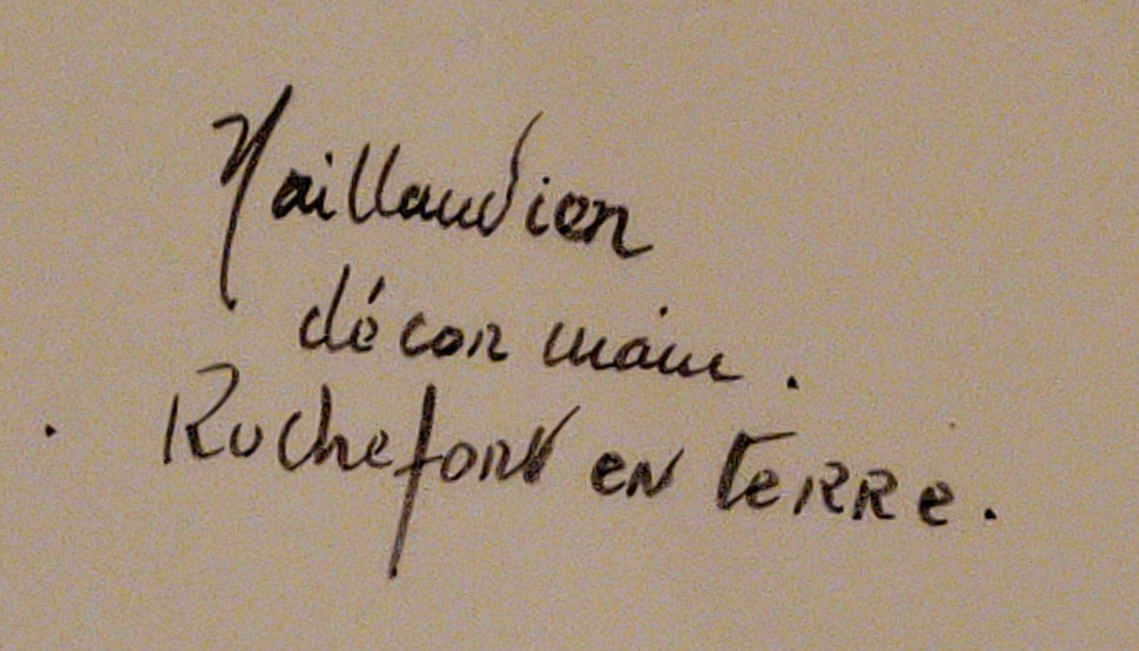 Taillaudier
décor main.
Rochefort en terre.